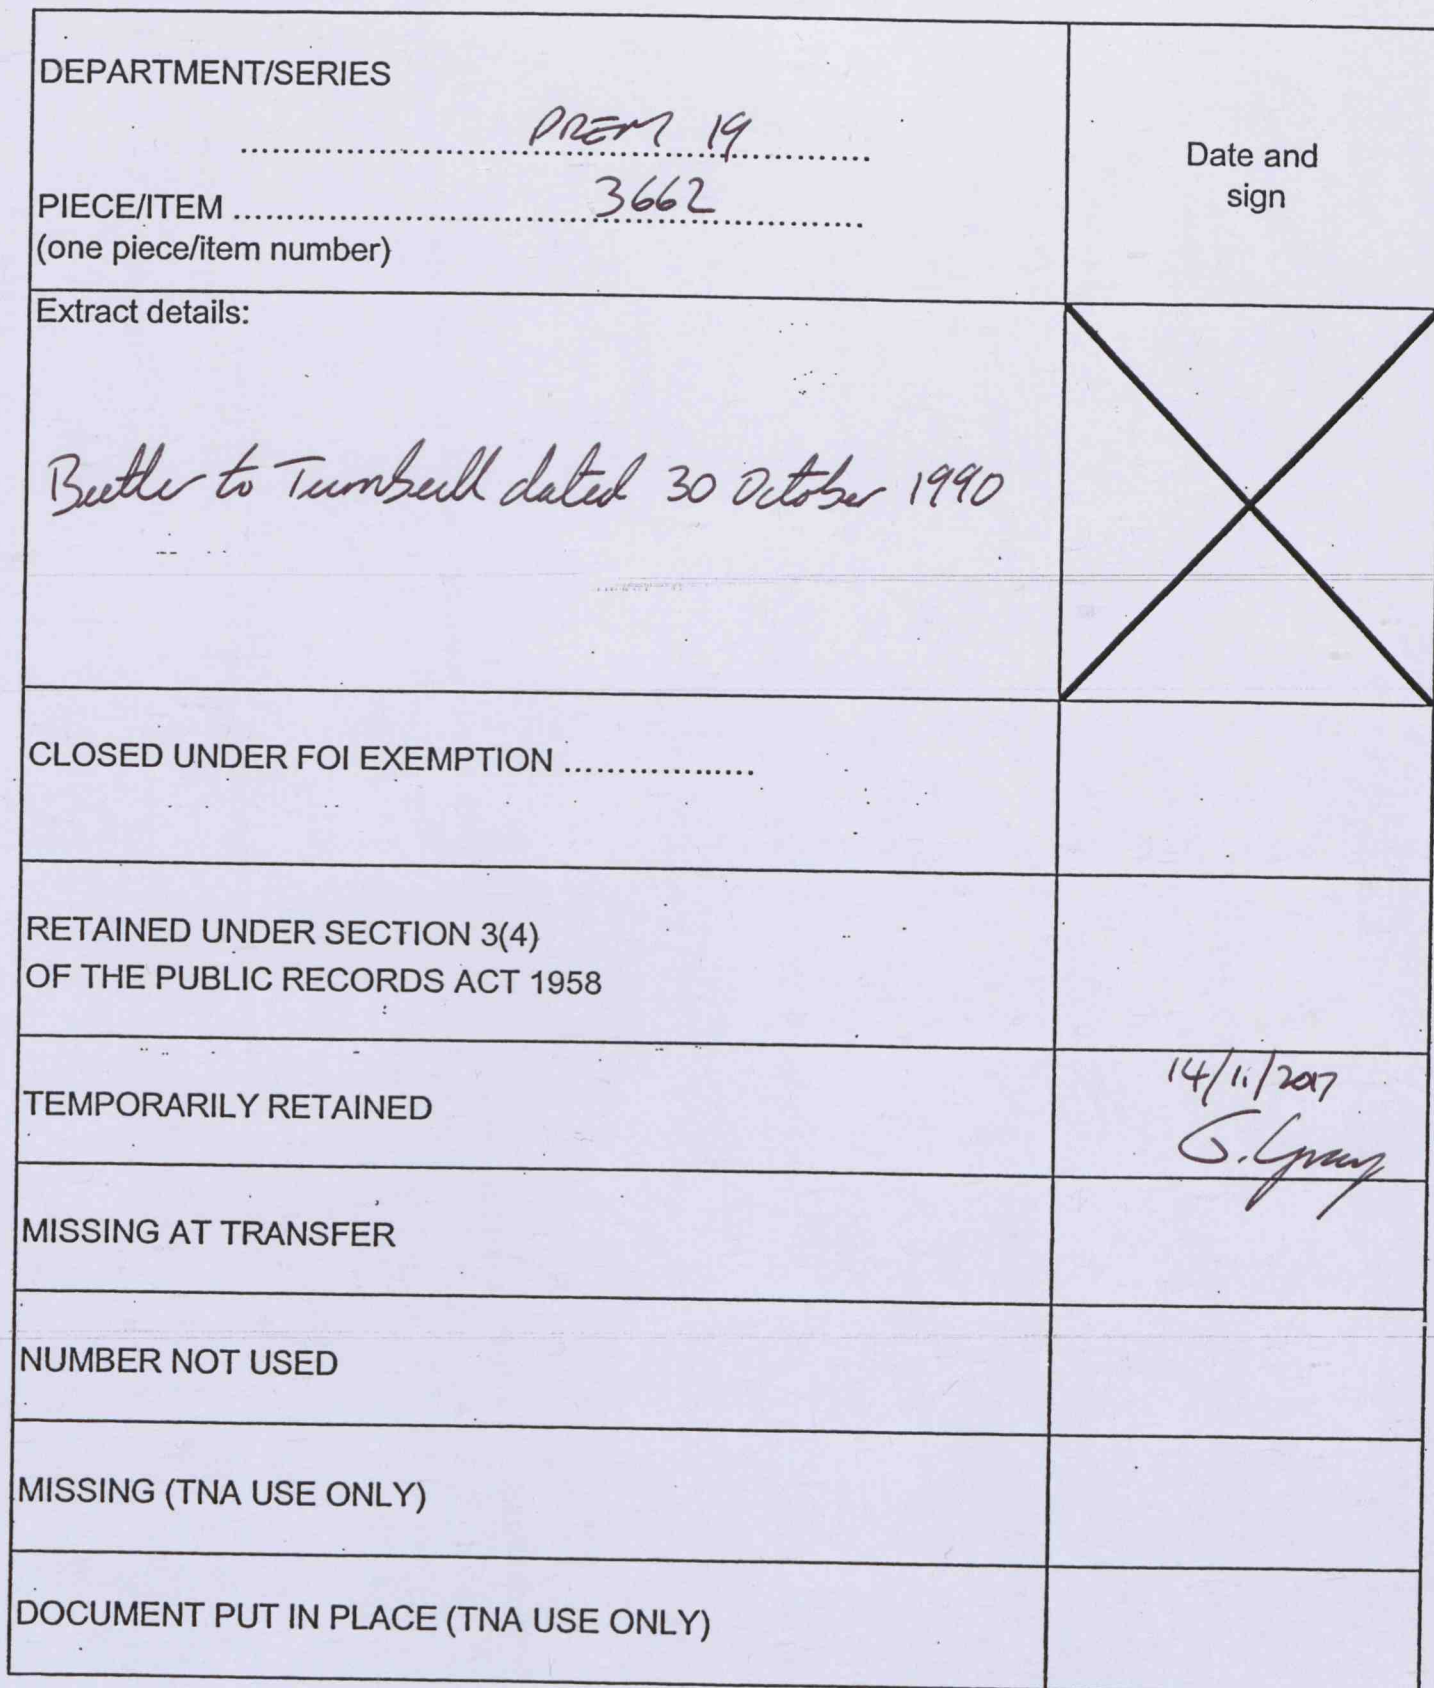 DEPARTMENT/SERIES
PREM 19
Date and
sign
PIECE/ITEM 3662
(one piece/item number)
Extract details:
Butler to Turnbull dated 30 October 1990
CLOSED UNDER FOI EXEMPTION
RETAINED UNDER SECTION 3(4)
OF THE PUBLIC RECORDS ACT 1958
TEMPORARILY RETAINED
14/11/2017
G. Gray
MISSING AT TRANSFER
NUMBER NOT USED
MISSING (TNA USE ONLY)
DOCUMENT PUT IN PLACE (TNA USE ONLY)